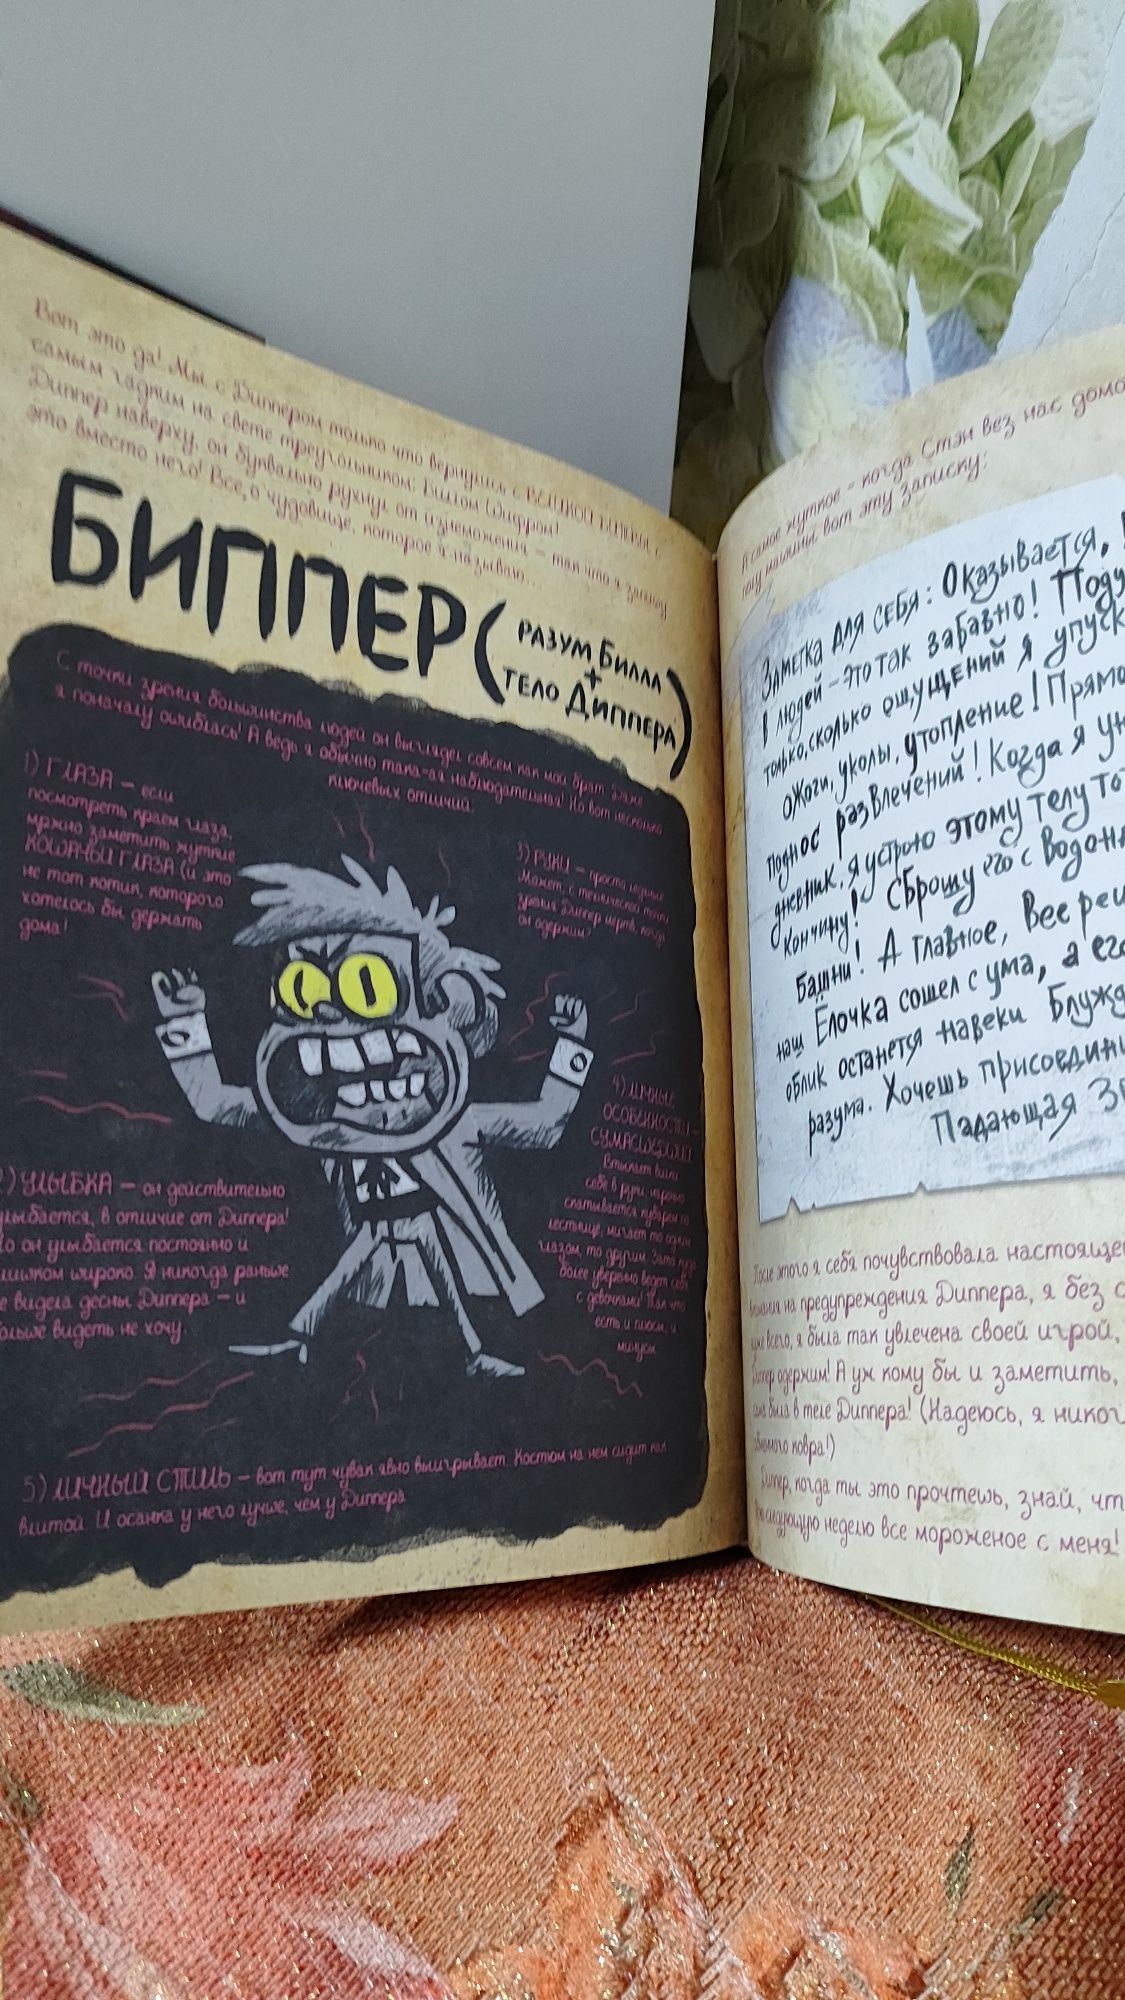 Вот это да! Мы с Диппером только что вернулись с ВЕЛИКОЙ БИТВЫ с
самым гадким на свете треугольником: Биллом Шифром!
Диппер наверху, он буквально рухнул от изнеможения – так что я запишу
это вместо него! Все, о чудовище, которое я называю...
БИППЕР (РАЗУМ БИЛЛА
+
ТЕЛО ДИППЕРА)
С точки зрения большинства людей он выглядел совсем как мой брат. Даже
я поначалу ошиблась! А ведь я обычно така-ая наблюдательная! Но вот несколько
ключевых отличий:
1) ГЛАЗА – если
посмотреть краем глаза,
можно заметить жуткие
КОШАЧЬИ ГЛАЗА (и это
не тот котик, которого
хотелось бы держать
дома!
3) РУКИ – просто ледяные.
Может, с технической точки
зрения Диппер мертв, когда
он одержим?
2) УЛЫБКА – он действительно
улыбается, в отличие от Диппера!
Но он улыбается постоянно и
слишком широко. Я никогда раньше
не видела десны Диппера – и
больше видеть не хочу.
4) ЛИЧНЫЕ
ОСОБЕННОСТИ –
СУМАСШЕДШИЙ
Втыкает вилки
себе в руки,
скатывается кубарем по
лестнице, мигает то одним
глазом, то другим. Зато куда
более уверенно ведет себя
с девочками! Так что
есть и плюсы, и
минусы.
5) ЛИЧНЫЙ СТИЛЬ – вот тут чувак явно выигрывает. Костюм на нем сидит как
влитой. И осанка у него лучше, чем у Диппера
А самое жуткое – когда Стэн вез нас домой
полу машины вот эту записку:
ЗАМЕТКА ДЛЯ СЕБЯ: Оказывается,
в людей – это так забавно! Поду
только, сколько ощущений я упуск
ожоги, уколы, утопление! Прямо
поднос развлечений! Когда я ун
дневник, я устрою этому телу то
кончину! Сброшу его с водона
башни! А главное, все реш
наш Ёлочка сошел с ума, а его
облик останется навеки блужд
разума. Хочешь присоедини
Падающая Зв
После этого я себя почувствовала настояще
внимания на предупреждения Диппера, я без с
всего, я была так увлечена своей игрой,
Диппер одержим! А уж кому бы и заметить,
сама была в теле Диппера! (Надеюсь, я никог
ковра!)
Диппер, когда ты это прочтешь, знай, чт
следующую неделю все мороженое с меня!